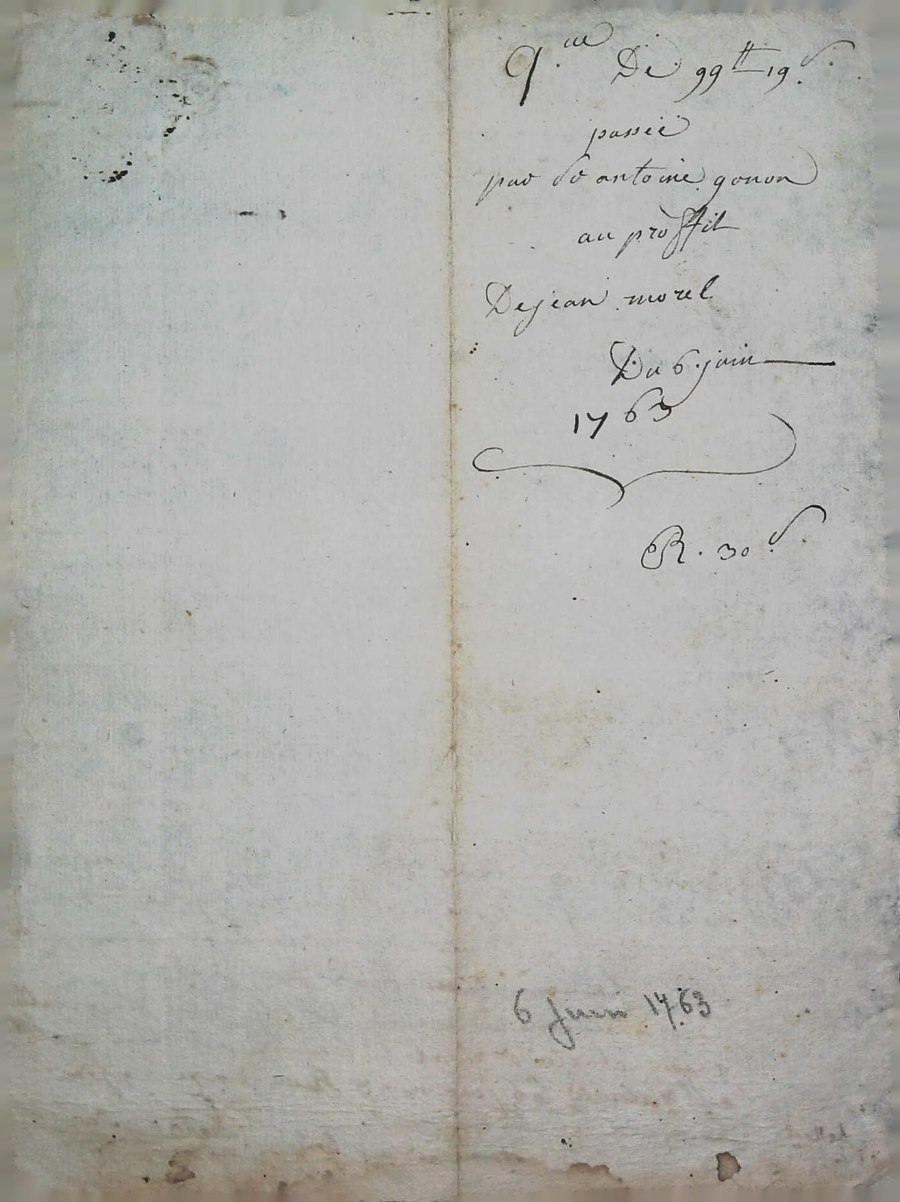 q.ce De 99 ₶ 19 s.
passée
par sr antoine gonon
au proffit
De jean morel
Du 6 juin
1763
R. 30 s.
6 juin 1763